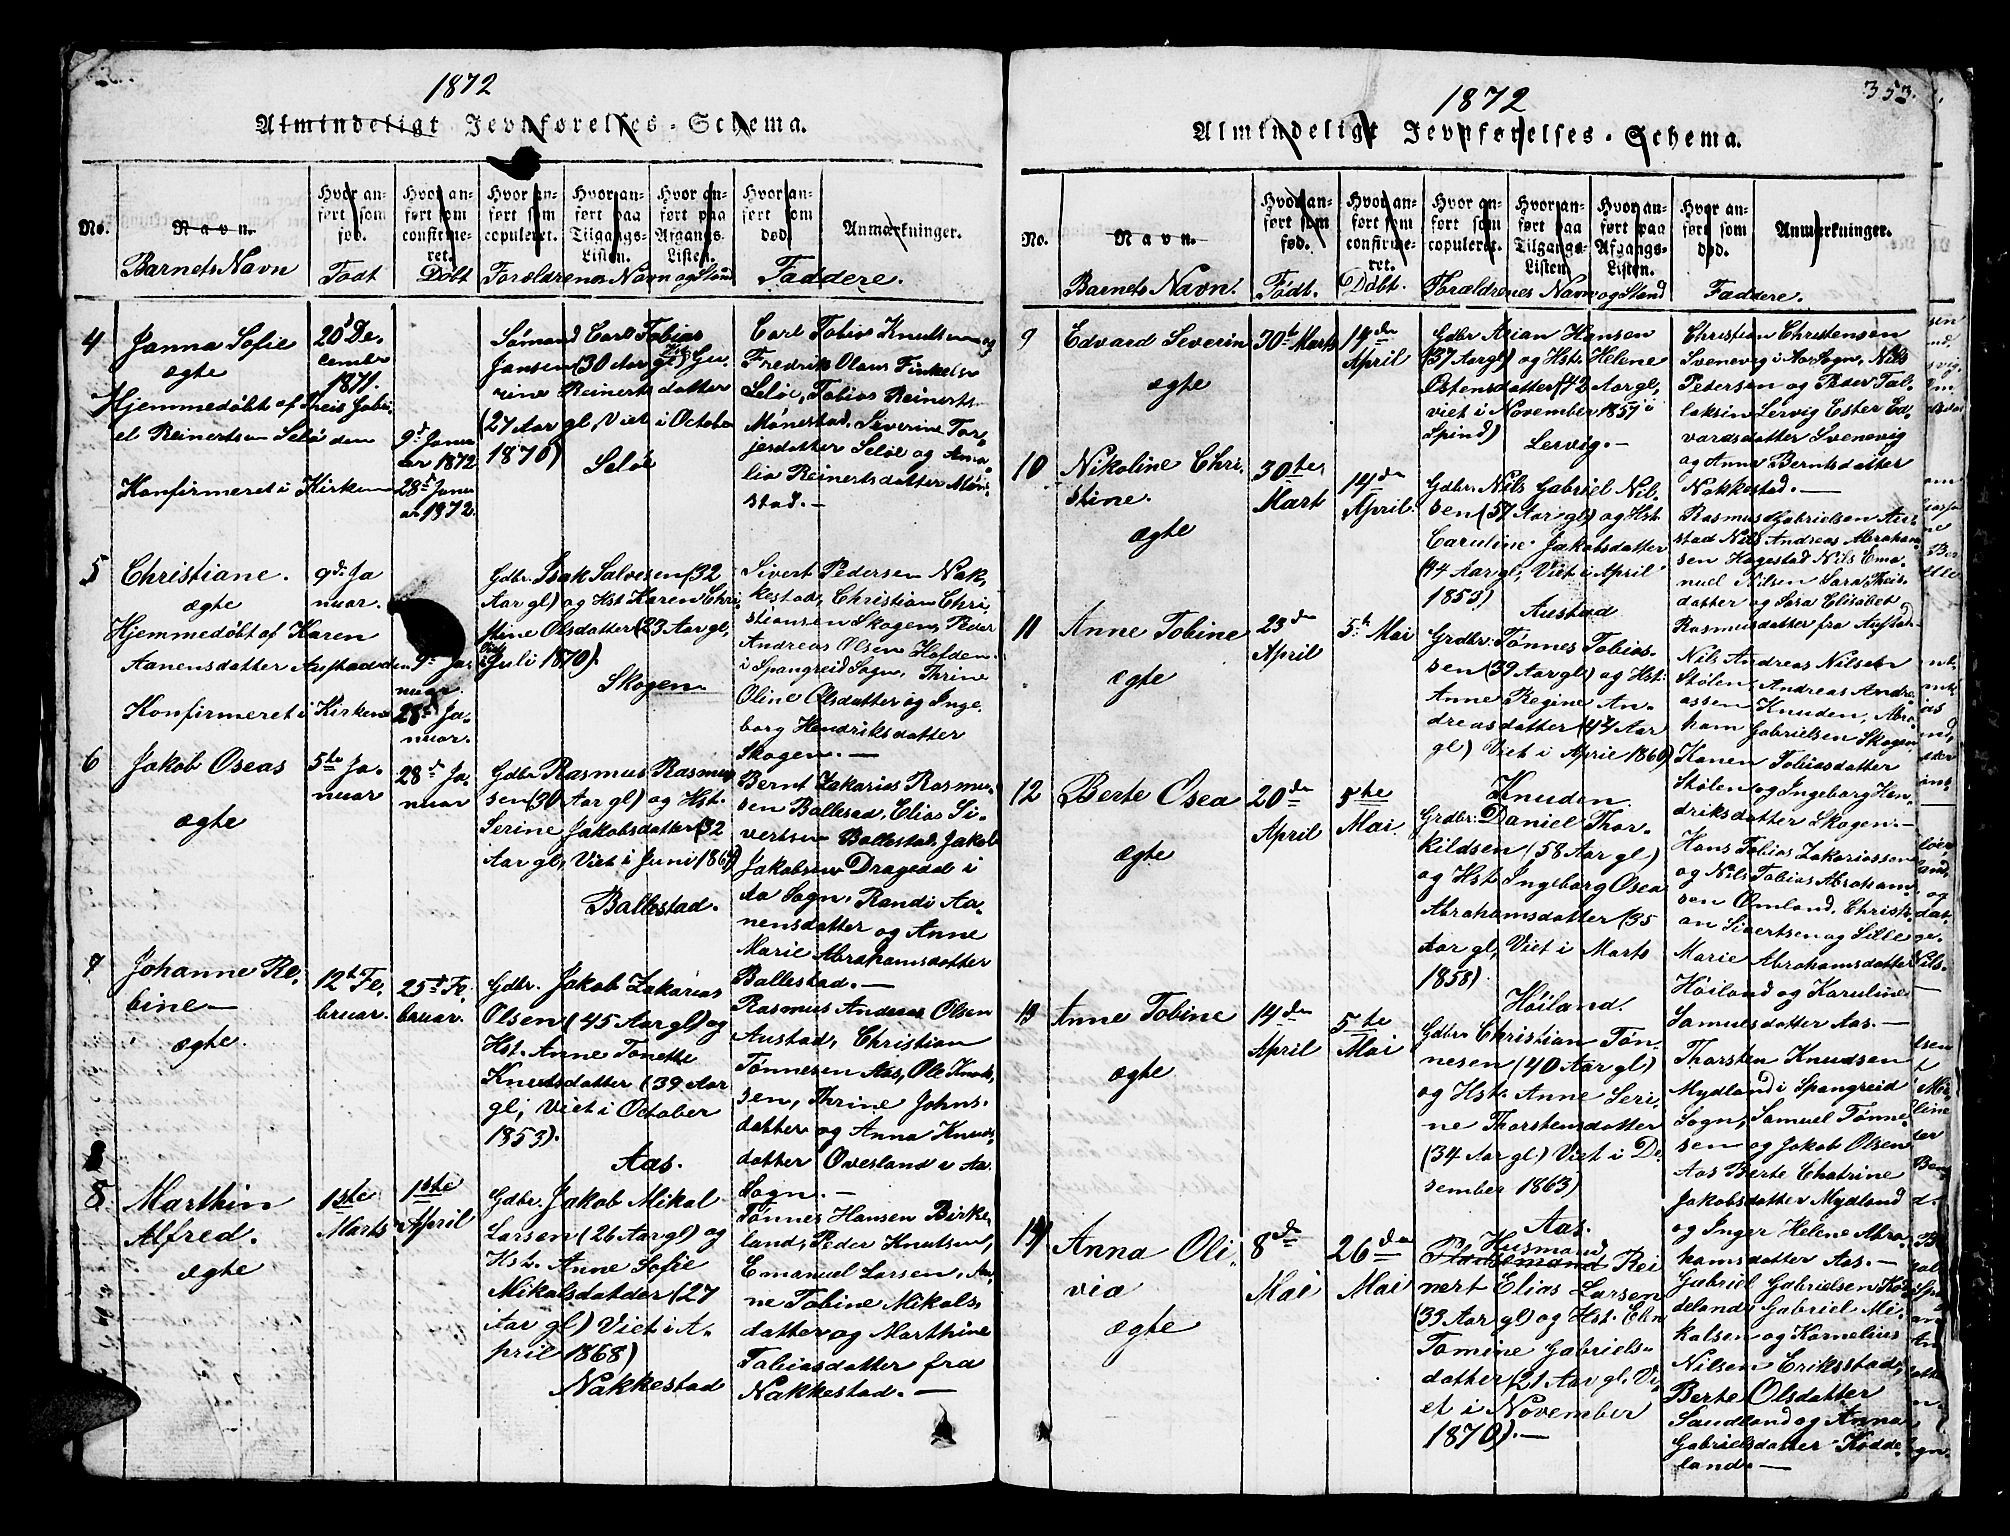 1872
Almindeligt Jevnførelses-Schema.
No.
Navn.
Hvor an-
ført som
fød.
Hvor an-
ført som
confirme-
ret.
Hvor an-
ført som
copuleret.
Hvor an-
ført paa
Tilgangs-
Listen.
Hvor an-
ført paa
Afgangs-
Listen.
Hvor an-
ført som
død.
Anmærkninger.
Barnets Navn
Født
Døbt
Forældrenes Navn og Stand
Faddere.
4
Janna Sofie
ægte
Hjemmedøbt af Theis Gabri-
el Reinertsen Seløe den
Konfirmeret i Kirken
20d De-
cember
1871.
9d Janu
ar 1872
28d Janu
ar 1872.
Sømand Carl Tobias
Jansen (30 Aar gl) Hst. Gu-
rine Reinertsdatter
(27 Aar gl, Viet i October
1870)
Seløe
Carl Tobias Knutsen og
Fredrik Olaus Finkelsen
Seløe, Tobias Reinerts.
Mønestad, Severine Tor-
jersdatter Seløe og Ama-
lia Reinertsdatter Møne-
stad.-
5
Christiane.
ægte
Hjemmedøbt af Karen
Aanensdatter Austad den
Konfirmeret i Kirken
9d. Ja
nuar.
9d. Ja
nuar.
28d Ja-
nuar.
Gdbr. Isak Salvesen (32
Aar gl) og Hst Karen Chri-
stine Olsdatter (23 Aar gl,
Viet i Juli 1870).
Skogen
Sivert Pedersen Nak-
kestad, Christian Chri-
stiansen Skogen, Peder
Andreas Olsen Hofden
i Spangreid Sogn, Thrine
Oline Olsdatter og Inge-
borg Hendriksdatter
Skogen.-
6
Jakob Oseas
ægte
5te Ja-
nuar
28d Ja-
nuar
Gdbr Rasmus Rasmus
sen (30 Aar gl) og Hst.
Serine Jakobsdatter (32
Aar gl, Viet i Juni 1869)
Ballestad.
Bernt Zakarias Rasmus-
sen Ballestad, Elias Si-
vertsen Ballestad, Jakob
Jakobsen Dragedal i
Aa Sogn, Randi Aa-
nensdatter og Anne
Marie Abrahamsdatter
Ballestad.-
7
Johanne Re-
bine-
ægte.
12t Fe-
bruar.
25d Fe-
bruar.
Gdbr. Jakob Zakarias
Olsen (45 Aar gl) og
Hst. Anne Tonette
Knutsdatter (39 Aar
gl, Viet i October
1853).
Aas.
Rasmus Andreas Olsen
Austad, Christian
Tønnesen Aas, Ole Knut-
sen, Thrine Johns-
datter og Anna Knuds-
datter Ovesland i Aa
Sogn.-
8.
Marthin
Alfred.
ægte
1ste
Marts
1ste
April
Gdbr. Jakob Mikal
Larsen (26 Aar gl) og
Hst. Anne Sofie
Mikalsdatder (27
Aar gl) Viet i A-
pril 1868)
Nakkestad
Tønnes Hansen Birke-
land, Peder Knutsen,
Emanuel Larsen, An-
ne Tobine Mikals
datter og Marthine
Tobiasdatter fra
Nakkestad.-
1872
353.
Almindeligt Jevnførelses-Schema.
No.
Navn.
Hvor an-
ført som
fød.
Hvor an-
ført som
confirme-
ret.
Hvor an-
ført som
copuleret.
Hvor an-
ført paa
Tilgangs-
Listen.
Hvor an-
ført paa
Afgangs-
Listen.
Hvor an-
ført som
død.
Anmærkninger.
Barnets Navn.
Født.
Døbt.
Forældrenes Navn og Stand
Faddere.
9
Edvard Severin
ægte
30te Marts
14de
April
Gdbr Arian Hansen
(37 Aar gl) og Hst. Helene
Østensdatter (42 Aar gl,
viet i November 1857 i
Spind)
Lervig.-
Christian Christensen
Svenevig i Aa Sogn, Nils
Pedersen og Peder Tal-
laksen Lervig Ester Ed-
vardsdatter Svenevig
og Anne Berntsdatter
Nakkestad.-
10
Nikoline Chri-
stine.
ægte
30te
Mart
14de
April.
Gdbr. Nils Gabriel Nil-
sen (57 Aar gl) og Hst.
Caruline Jakobsdatter
(44 Aar gl, Viet i April
1853)
Austad
Rasmus Gabrielsen Au-
stad Nils Andreas Abraham-
sen Hagestad Nils Ema-
nuel Nilsen Sara Theis-
datter og Sara Elisabet
Rasmusdatter fra Austad
11
Anne Tobine
ægte
23de
April
5te Mai
Grdbr. Tønnes Tobias-
sen (39 Aar gl) og Hst.
Anne Regine An-
dreasdatter (44 Aar
gl) Viet i April 1860)
Knuden.
Nils Andreas Nilsen
Stølen Andreas Andre-
assen Knuden, Abra-
ham Gabrielsen Skogen
Karen Tobiasdatter
Stølen og Ingeborg Hen-
driksdatter Skogen.-
12
Berte Osea
ægte
20de
April
5te
Mai.
Grdbr. Daniel Thor-
kildsen (58 Aar gl)
og Hst. Ingeborg Osea
Abrahamsdatter (35
Aar gl, Viet i Marts
1858)
Høiland.
Hans Tobias Zakariassen
og Nils Tobias Abraham-
sen Omland, Christi-
an Sivertsen og Sille
Marie Abrahamsdatter
Høiland og Karuline
Samuelsdatter Aas.-
13
Anne Tobine
ægte
14de
April
5te
Mai
Gdbr Christian Tøn-
nesen (40 Aar gl)
og Hst. Anne Seri-
ne Thorstensdatter
(34 Aar gl.) Viet i De-
sember 1863)
Aas.
Thorsten Knudsen
Mydland i Spangreid
Sogn, Samuel Tønne-
sen og Jakob Olsen
Aas Berte Chatrine
Jakobsdatter Mydland
og Inger Helene Abra-
hamsdatter Aas.-
14
Anna Oli-
via
ægte
8de
Mai
26de
Mai
Husmand
Rei
nert Elias Larsen
(33 Aar gl) og Hst. Elen
Tomine Gabriels-
datter (21 Aar gl. Vi-
et i November
1870).-
Gabriel Gabrielsen Kod-
deland, Gabriel Mi-
kalsen og Kornelius
Nilsen Eriksstad,
Berte Olsdatter
Saudland og Anna
Gabrielsdatter Kodde-
land.-